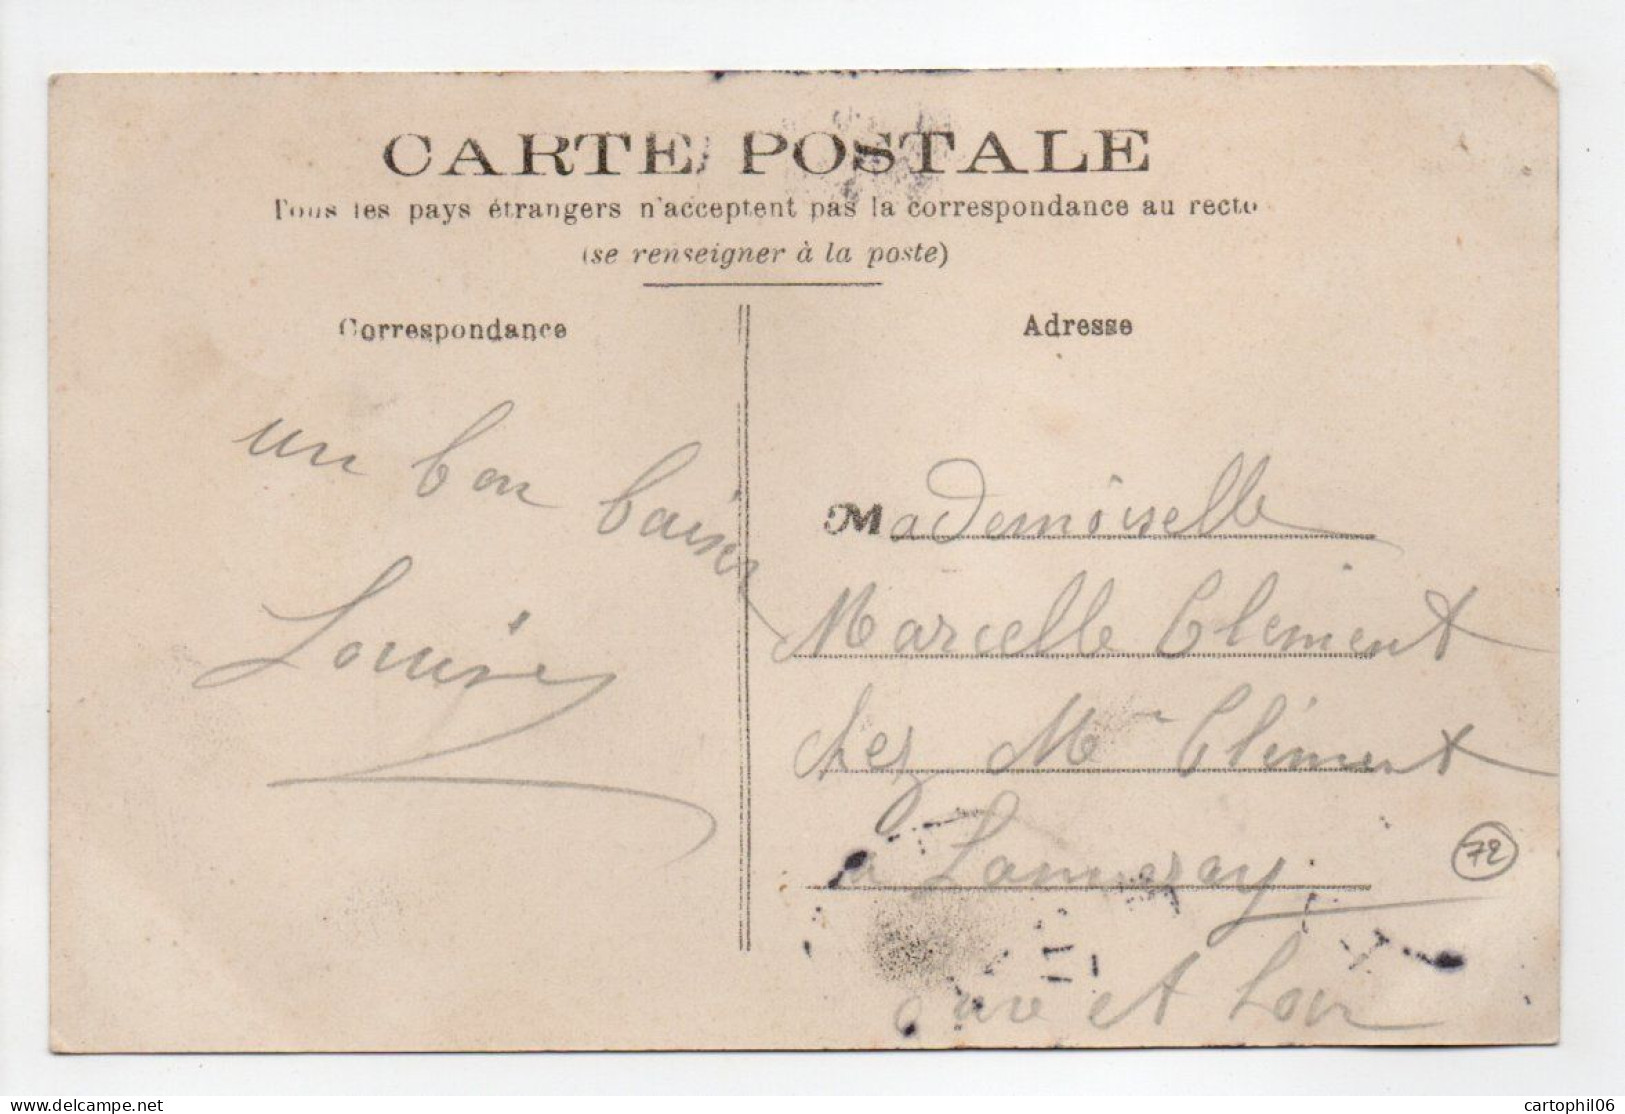 CARTE POSTALE
Tous les pays étrangers n'acceptent pas la correspondance au recto
(se renseigner à la poste)
Correspondance
un bon baiser
Louise
Adresse
Mademoiselle
Marcelle Clément
chez Mme Clément
a Lanneray
Eure et Loir
72
www.delcampe.net
cartophil06